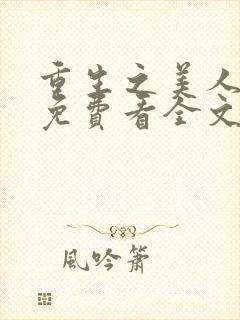 重生之美人
免費看全文
風吟簫